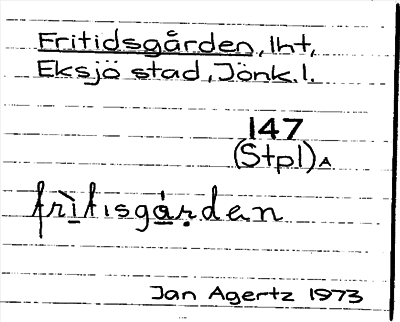 Fritidsgården, lht,
Eksjö stad, Jönk. l.
147
(Stpl) A
frìtisgá̱ṛdan
Jan Agertz 1973